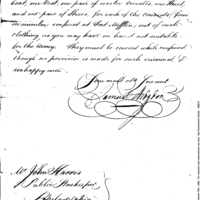 Coat, One Vest, one pair of winter Overalls, one Shirt,
and one pair of Shoes, for each of the convicts; four
in number, confined at Fort Mifflin; out of such
clothing as you may have on hand not suitable
for the Army. They must be covered while confined
though no provision is made for such criminal &
unhappy men.
Your most obt Servant
Samuel Hodgdon
Mr John Harris
Public Storekeeper
Philadelphia